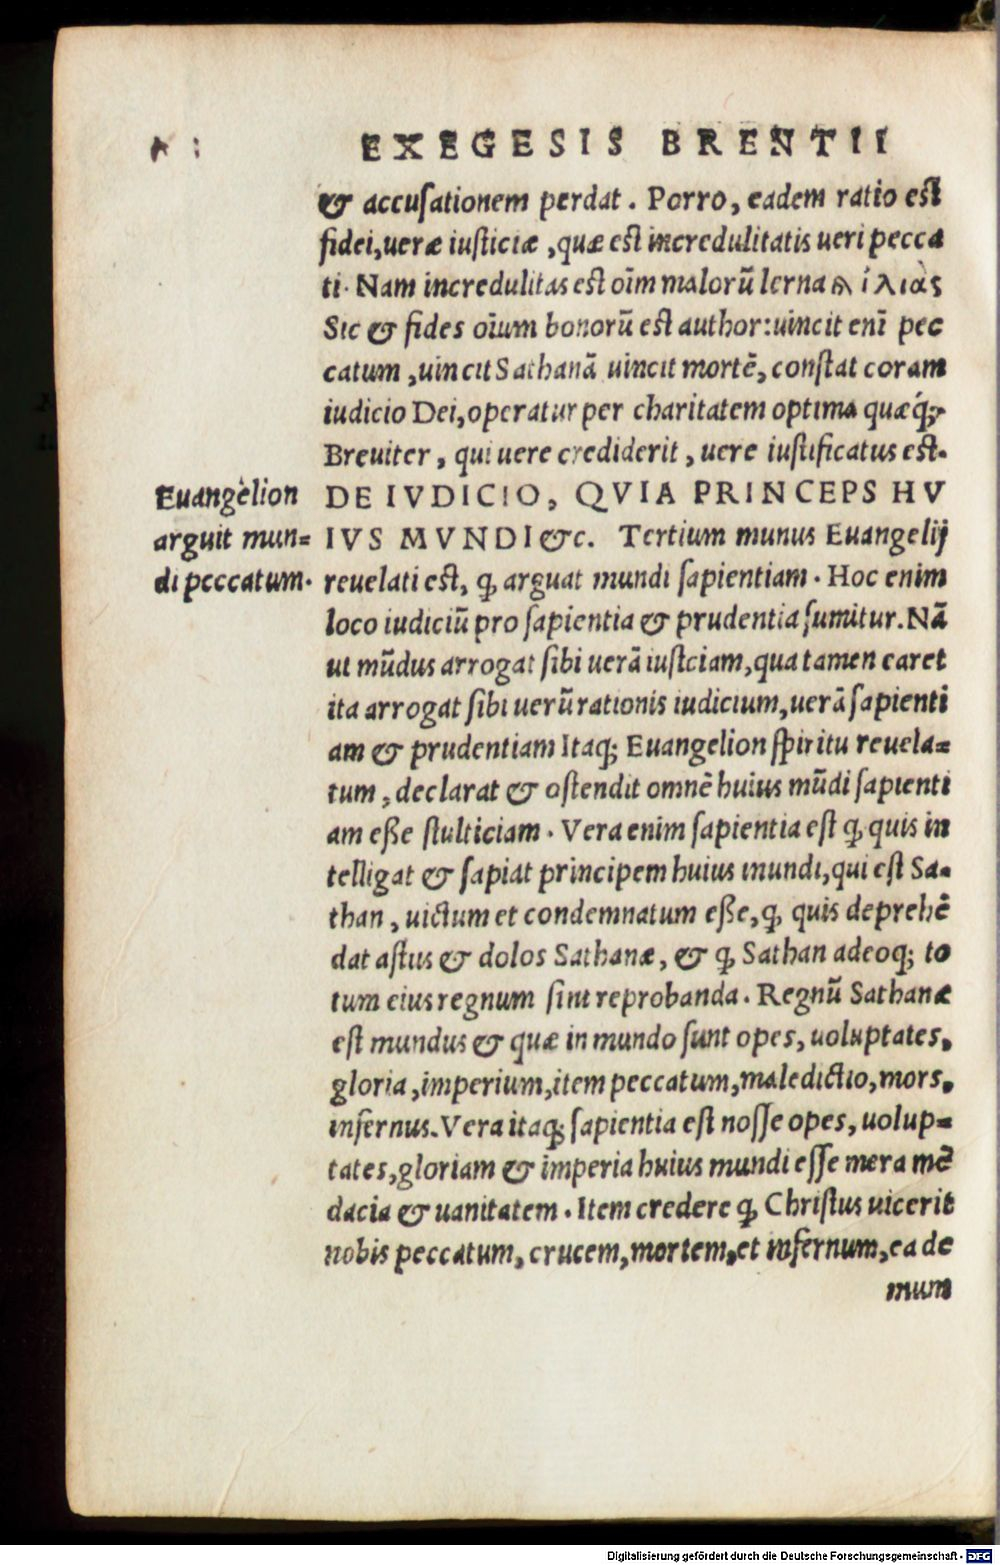 EXEGESIS BRENTII
& accuſationem perdat. Porro, eadem ratio eſt
fidei, ueræ iuſticiæ, quæ eſt incredulitatis ueri pecca
ti. Nam incredulitas eſt oīm malorū lerna & ίλιὰς
Sic & fides oīum bonorū eſt author: uincit enī pec
catum, uincit Sathanā uincit mortē, conſtat coram
iudicio Dei, operatur per charitatem optima quæq́;
Breuiter, qui uere crediderit, uere iuſtificatus eſt.
DE IVDICIO, QVIA PRINCEPS HV
Euangelion
arguit mun=
di peccatum.
IVS MVNDI &c. Tertium munus Euangelij
reuelati eſt, ꝙ arguat mundi ſapientiam. Hoc enim
loco iudiciū pro ſapientia & prudentia ſumitur. Nā
ut mūdus arrogat ſibi uerā iuſtciam, qua tamen caret
ita arrogat ſibi uerū rationis iudicium, uerā ſapienti
am & prudentiam Itaq; Euangelion ſpiritu reuela=
tum, declarat & oſtendit omnē huius mūdi ſapienti
am eſſe ſtulticiam. Vera enim ſapientia eſt ꝙ quis in
telligat & ſapiat principem huius mundi, qui eſt Sa=
than, uictum et condemnatum eſſe, ꝙ quis deprehē
dat aſtus & dolos Sathanæ, & ꝙ Sathan adeoq; to
tum eius regnum ſint reprobanda. Regnū Sathanæ
eſt mundus & quæ in mundo ſunt opes, uoluptates,
gloria, imperium, item peccatum, maledictio, mors,
infernus. Vera itaq; ſapientia eſt noſſe opes, uolup=
tates, gloriam & imperia huius mundi eſſe mera mē
dacia & uanitatem. Item credere ꝙ Chriſtus uicerit
nobis peccatum, crucem, mortem, et infernum, ea de
mum
Digitalisierung gefördert durch die Deutsche Forschungsgemeinschaft - DFG